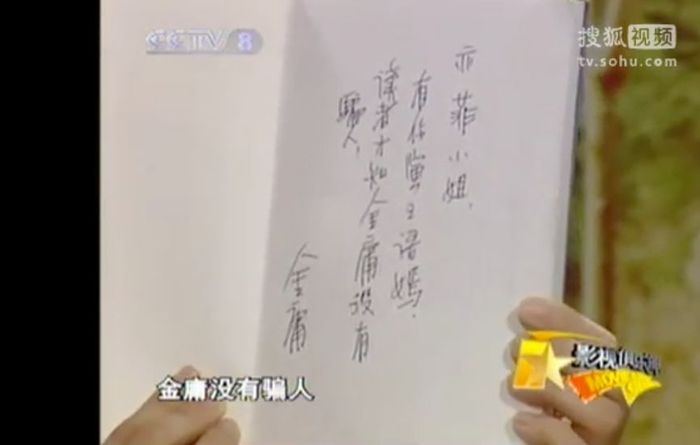 CCTV 8
搜狐视频
tv.sohu.com
亦菲小姐,
有你演王语嫣,
读者才知金庸没有
骗人,
金庸
影视俱乐部
MOVIE
金庸没有骗人